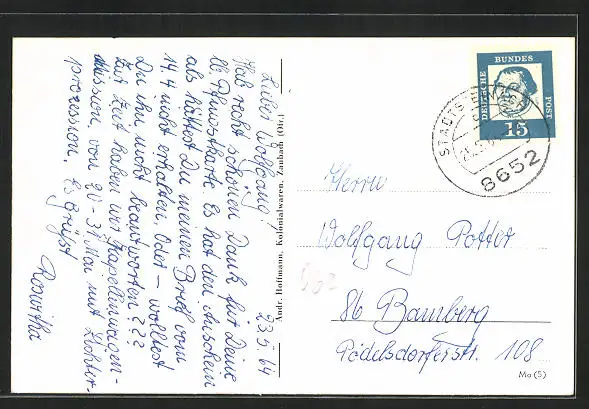 23.5.64
Lieber Wolfgang!
Hab recht schönen Dank für Deine
lb Pfingstkarte. Es hat den Anschein
als hättest Du meinen Brief vom
14.4 nicht erhalten. Oder – wolltest
Du ihn nicht beantworten???
Zur Zeit haben wir
mission, von 20 - 31. Mai mit Lichter-
prozession. Es grüßt
Roswitha
Andr. Hoffmann, Kolonialwaren, Zaubach (Ofr.)
DEUTSCHE BUNDES POST
15
8652
Herrn
Wolfgang Potter
86 Bamberg
Pödeldorferstr. 108
Ma (5)